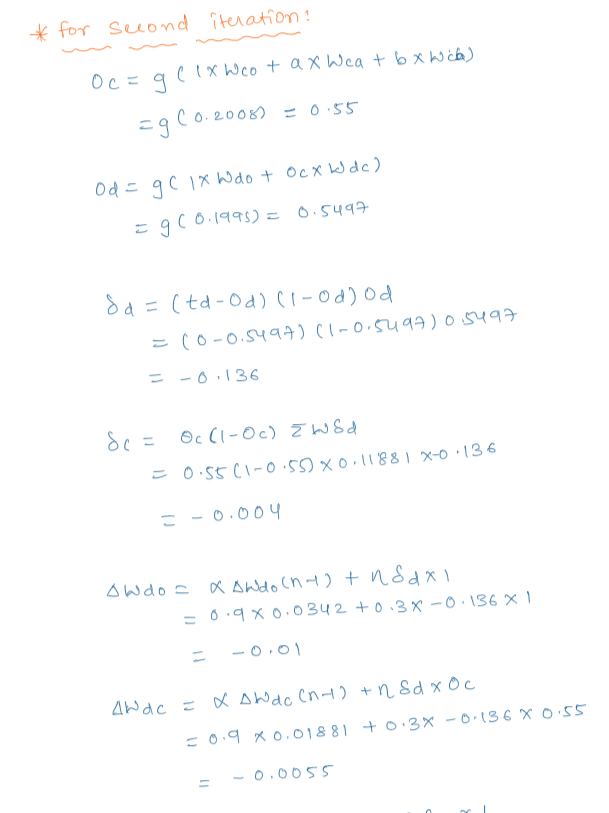 * for second iteration:
Oc = g(1xWco + axWca + bxWcb)
= g(0.2008) = 0.55
Od = g(1xWdo + OcxWdc)
= g(0.1995) = 0.5497
δd = (td-Od)(1-Od)Od
= (0-0.5497)(1-0.5497)0.5497
= -0.136
δc = Oc(1-Oc) ΣWδd
= 0.55(1-0.55)x0.11881x-0.136
= -0.004
ΔWdo = α ΔWdo(n-1) + ηδdx1
= 0.9x0.0342+0.3x-0.136x1
= -0.01
ΔWdc = α ΔWdc(n-1) + ηδdxOc
= 0.9x0.01881 + 0.3x-0.136x0.55
= -0.0055